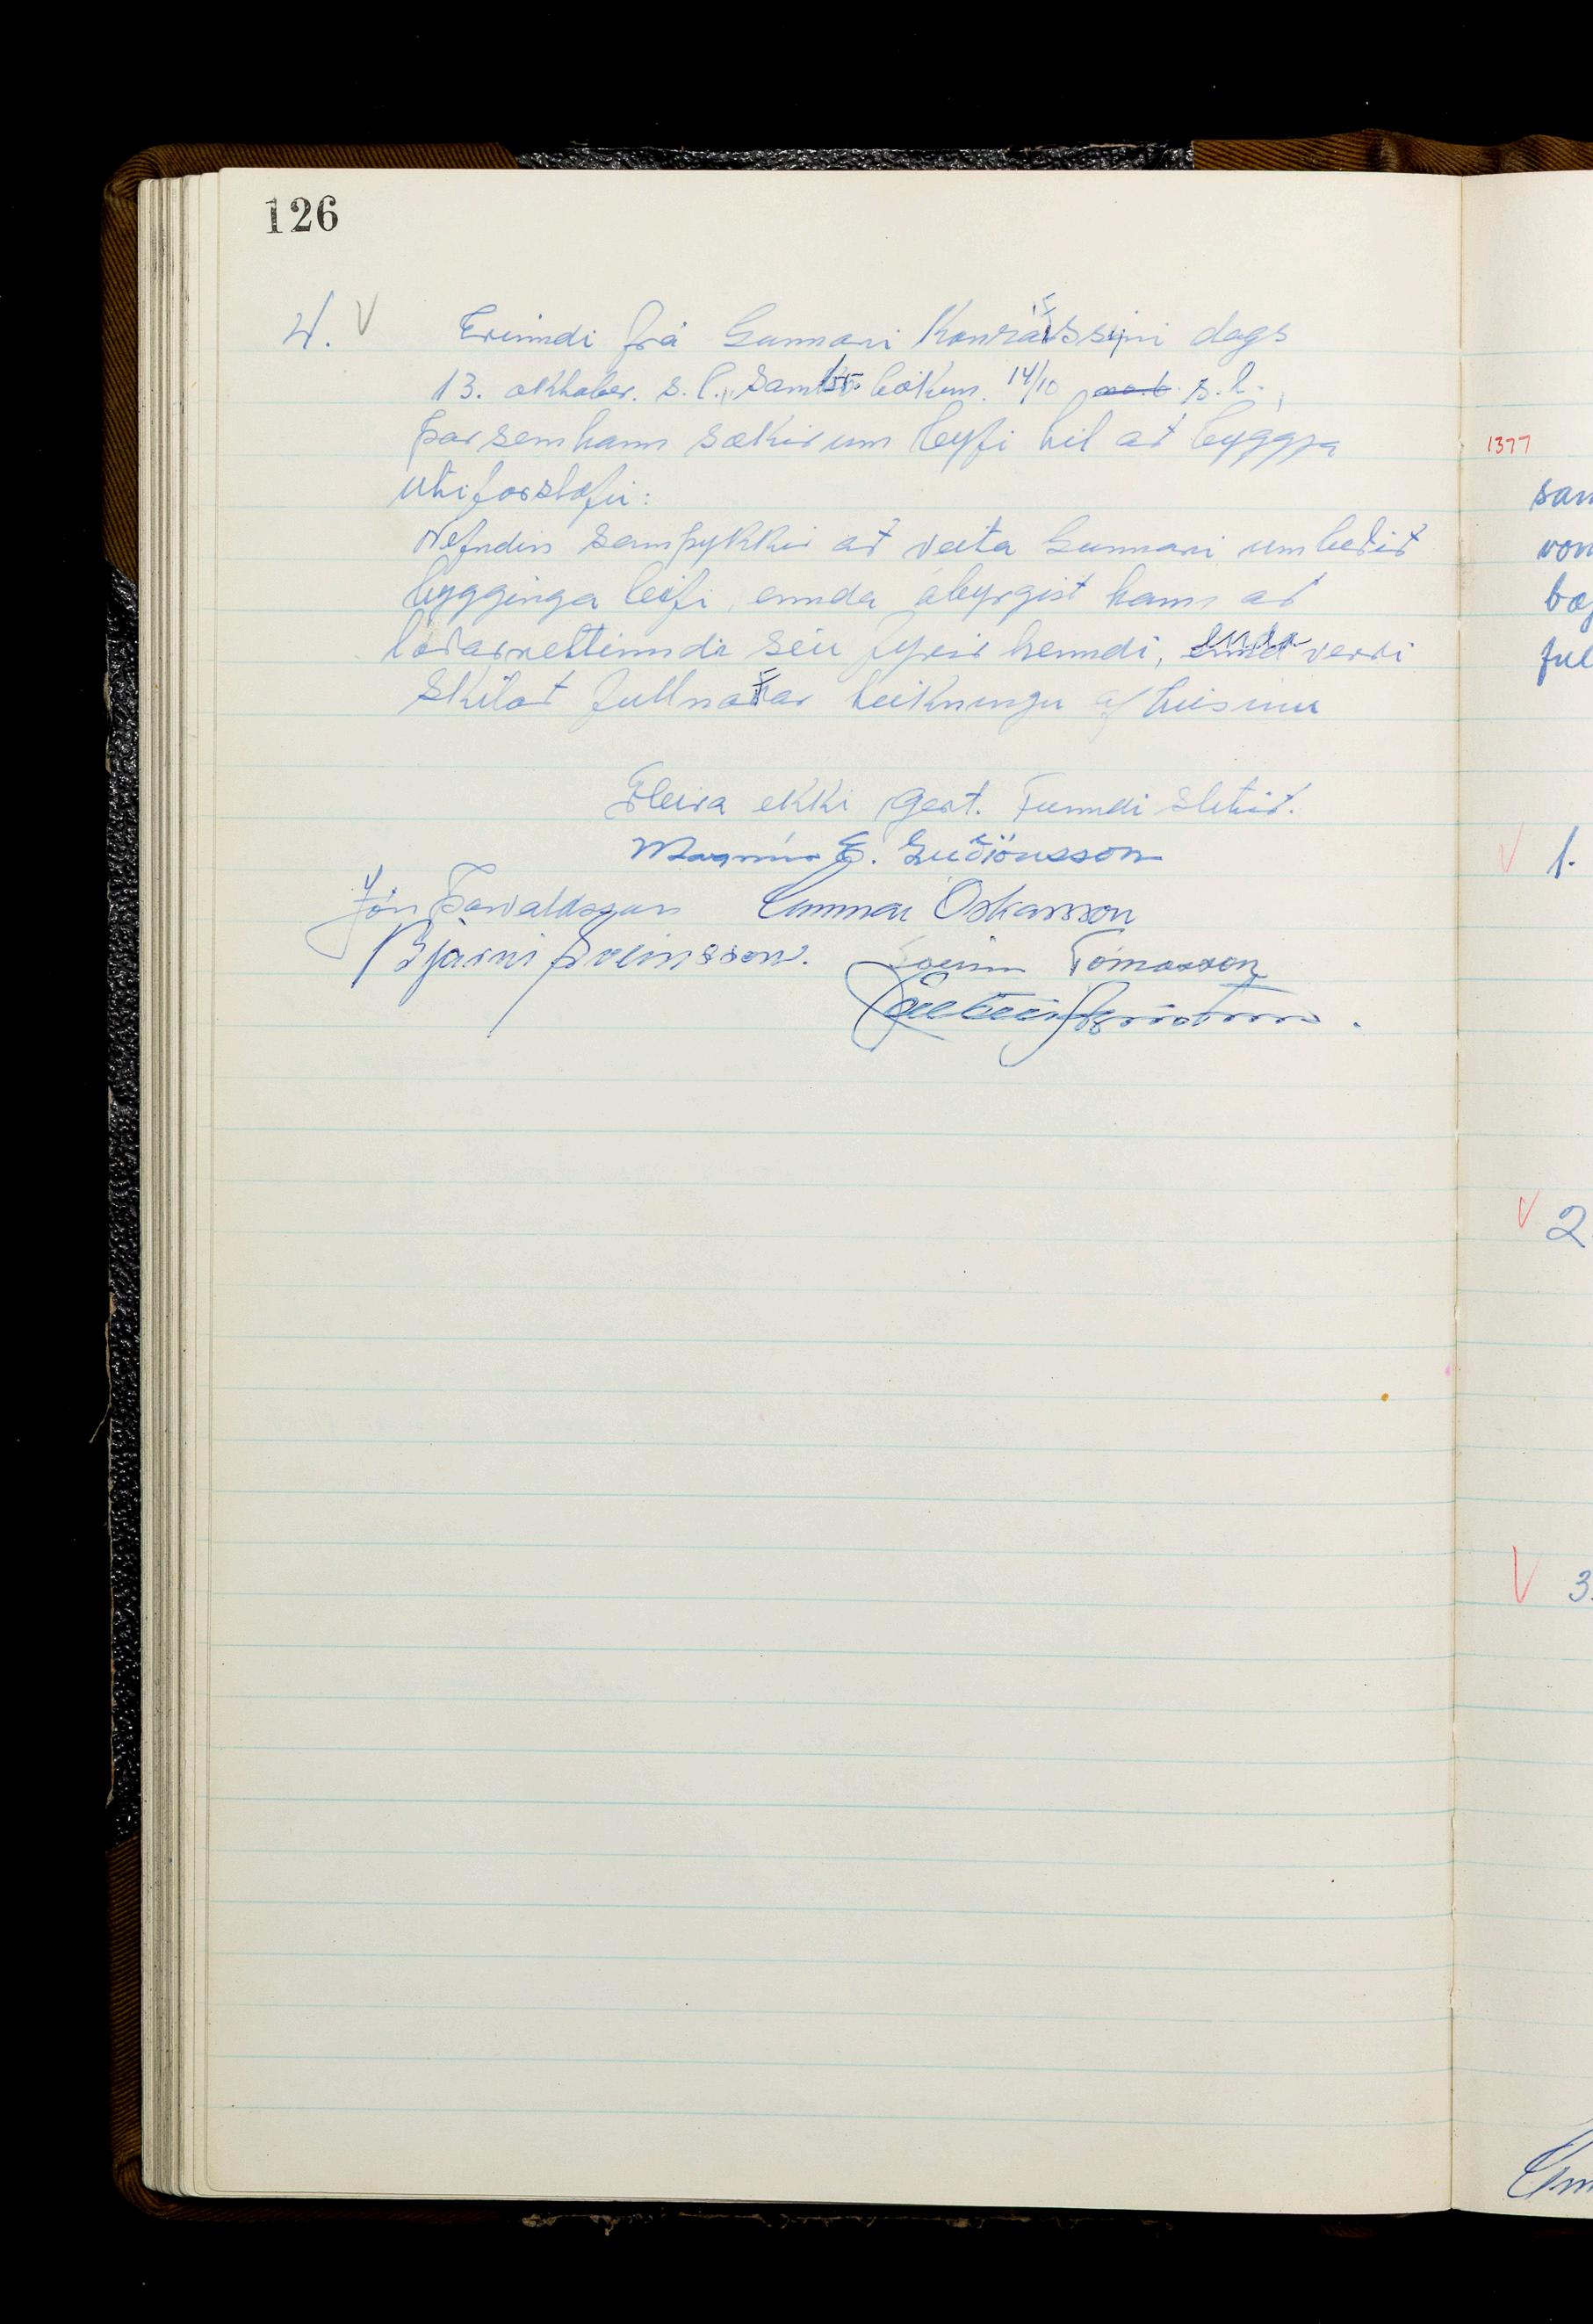 126
4. V Erinndi frá Gunnari Konráðssyni dags
13. oktober. s.l., sambr. bókun. 14/10 s.l.,
þar sem hann sækir um leyfi til að byggja
útiforstofu:
Nefndin samþykkir að veita Gunnari umbeðið
bygginga leifi, ennda ábyrgist hann að
lóðarréttinndi séu fyrir henndi, enda verði
skilað fullnaðar teikningu af húsinu
Fleira ekki gert. Funndi slitið.
Magnús E. Guðjónsson
Jón Þorvaldsson Gunnar Óskarsson
Bjarni Sveinsson. Sveinn Tómasson
1377
san
von
bæ
ful
V 1.
V 2.
V 3.